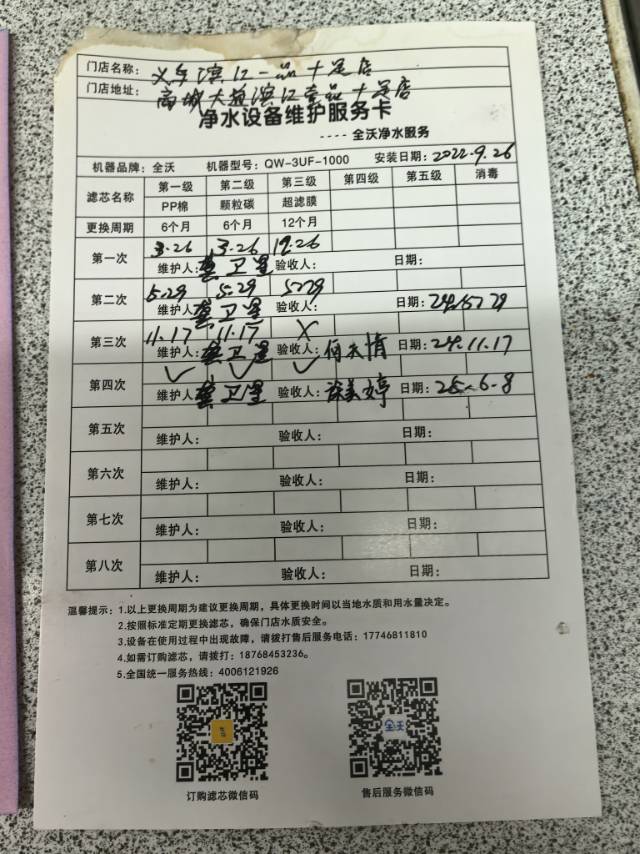 门店名称：义乌滨江一品十足店
门店地址：商城大道滨江壹品十足店
净水设备维护服务卡
----全沃净水服务
机器品牌：全沃 机器型号：QW-3UF-1000 安装日期：2022.9.26
滤芯名称 第一级 第二级 第三级 第四级 第五级 消毒
PP棉 颗粒碳 超滤膜
更换周期 6个月 6个月 12个月
第一次 3.26 3.26
维护人：龚卫星 验收人： 日期：
第二次 5.29 5.29 5.29
维护人：龚卫星 验收人： 日期：
第三次 11.17 11.17 X
维护人：龚卫星 验收人：何天情 日期：24.11.17
第四次 ✓ ✓ ✓
维护人：龚卫星 验收人：徐美婷 日期：25.6.8
第五次
维护人： 验收人： 日期：
第六次
维护人： 验收人： 日期：
第七次
维护人： 验收人： 日期：
第八次
维护人： 验收人： 日期：
温馨提示：1.以上更换周期为建议更换周期，具体更换时间以当地水质和用水量决定。
2.按照标准定期更换滤芯，确保门店水质安全。
3.设备在使用过程中出现故障，请拨打售后服务电话：17746811810
4.如需订购滤芯，请拨打：18768453236。
5.全国统一服务热线：4006121926
全沃
订购滤芯微信码 售后服务微信码